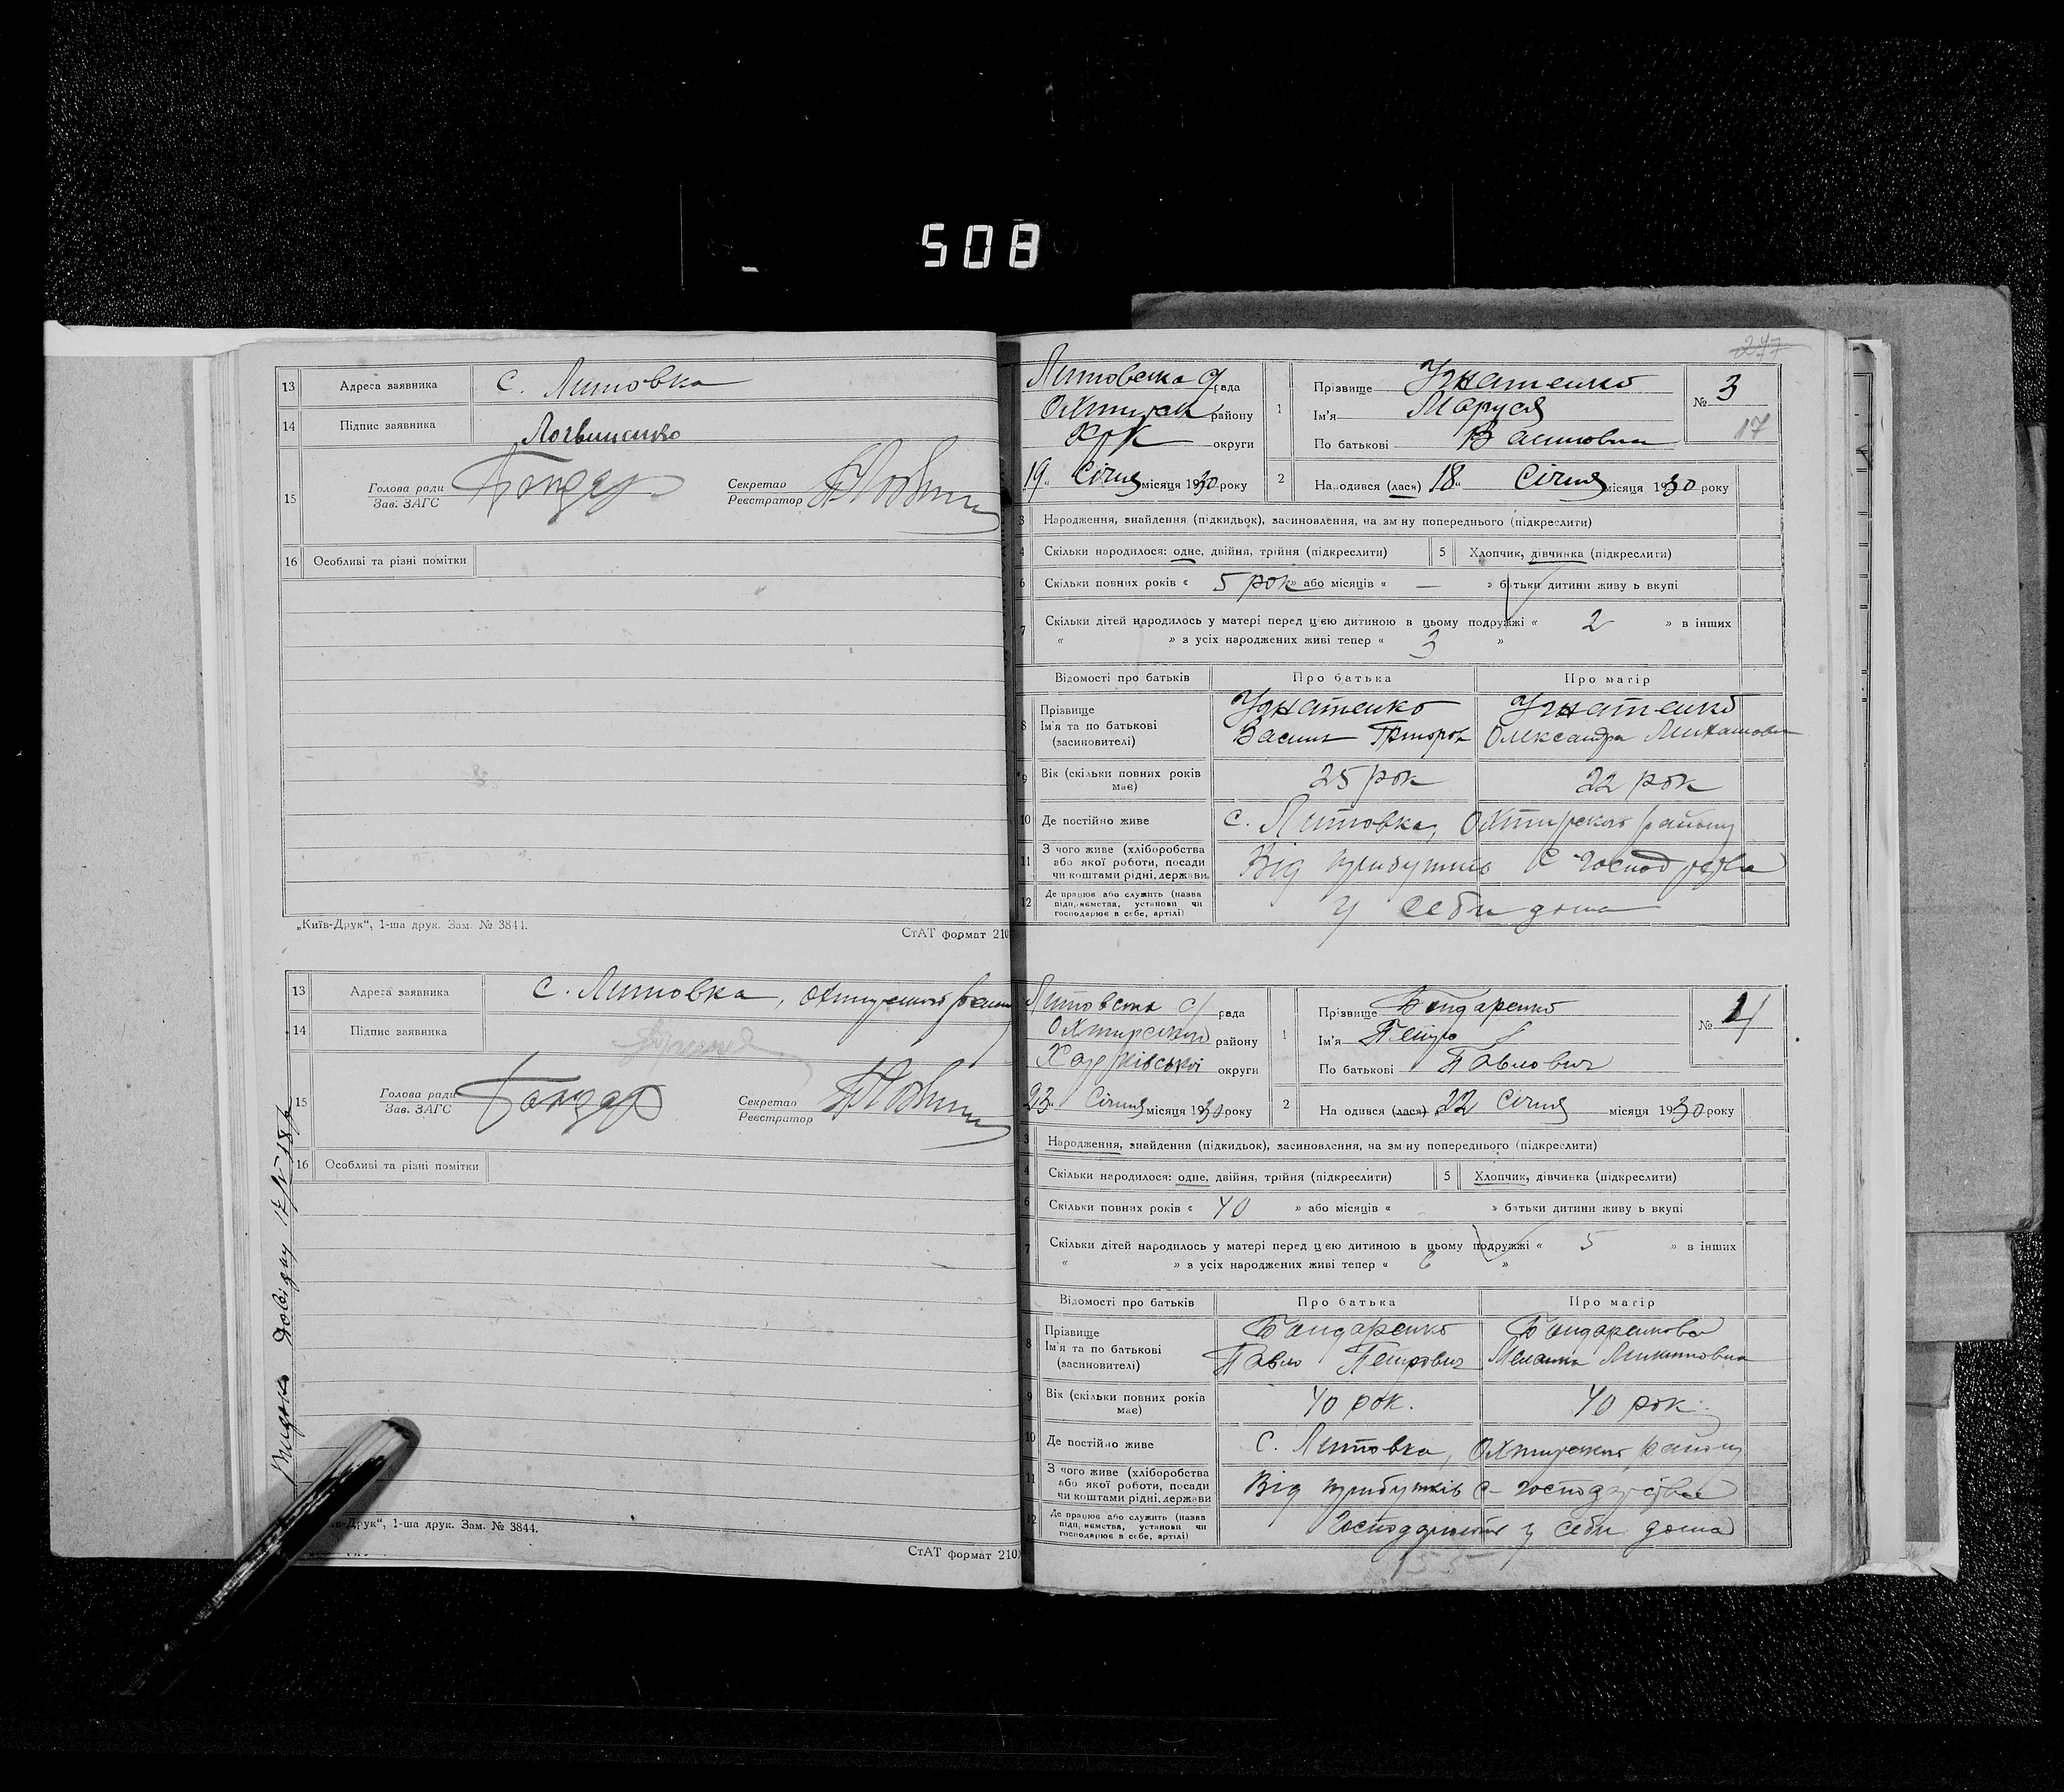 508
13 Адреса заявника с. Литовка
14 Підпис заявника Логвиненко
15 Голова ради
Зав. ЗАГС Бондар
Секретар
Реєстратор
16 Особливі та різні помітки
„Київ-Друк“, 1-ша друк. Зам. № 3844.
СтАТ формат 210
13 Адреса заявника с. Литовка, Охтирського району
14 Підпис заявника
15 Голова ради
Зав. ЗАГС Бондар
Секретар
Реєстратор
16 Особливі та різні помітки
Видано довідку
-Друк“, 1-ша друк. Зам. № 3844.
СтАТ формат 210
247
Литовська с/рада
Охтирськ району
Хрк округи
19 Січня місяця 1930 року
1 Прізвище Ігнатенко
Ім'я Маруся
По батькові Василовна
№ 3
17
2 Народився (лася) „18“ Січня місяця 1930 року
3 Народження, знайдення (підкидьок), засиновлення, на зміну попереднього (підкреслити)
4 Скільки народилося: одне, двійня, трійня (підкреслити)
5 Хлопчик, дівчинка (підкреслити)
6 Скільки повних років « 5 рок » або місяців « — » батьки дитини живуть вкупі
7 Скільки дітей народилось у матері перед цією дитиною в цьому подружжі « 2 » в інших
« » з усіх народжених живі тепер « 3 »
Відомості про батьків Про батька Про матір
8 Прізвище Ігнатенко Ігнатенко
Ім'я та по батькові Василь Григоров Олександра
(засиновителі)
9 Вік (скільки повних років 25 рок 22 рок
має)
10 Де постійно живе с. Литовка, Охтирського району
11 З чого живе (хліборобства
або якої роботи, посади Від прибутків с-господарства
чи коштами рідні, держави
12 Де працює або служить (назва
підприємства, установи чи у себе дома
господарює в себе, артілі)
Литовська с/ рада
Охтирського району
Харківської округи
23 Січня місяця 1930 року
1 Прізвище Бондаренко
Ім'я Петро
По батькові Павлович
№ 4
2 Народився (лася) „22 Січня місяця 1930 року
3 Народження, знайдення (підкидьок), засиновлення, на зміну попереднього (підкреслити)
4 Скільки народилося: одне, двійня, трійня (підкреслити)
5 Хлопчик, дівчинка (підкреслити)
6 Скільки повних років « 40 » або місяців « » батьки дитини живуть вкупі
7 Скільки дітей народилось у матері перед цією дитиною в цьому подружжі « 5 » в інших
« » з усіх народжених живі тепер « 6 »
Відомості про батьків Про батька Про матір
8 Прізвище Бондаренко Бондаренкова
Ім'я та по батькові Павло Петрович Меланка Микитовна
(засиновителі)
9 Вік (скільки повних років 40 рок. 40 рок.
має)
10 Де постійно живе с. Литовка, Охтирського району
11 З чого живе (хліборобства
або якої роботи, посади Від прибутків с-господарства
чи коштами рідні, держави
12 Де працює або служить (назва
підприємства, установи чи Господарюють у себе дома
господарює в себе, артілі)